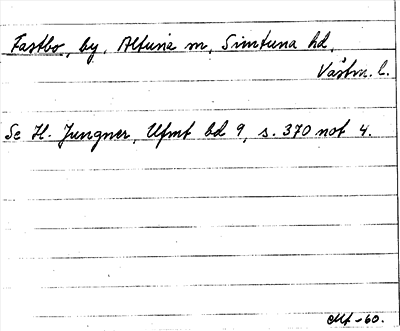 Fastbo, by, Altuna sn, Simtuna hd,
Västm. l.
Se H. Jungner, Ufmt bd 9, s. 370 not 4.
Mf -60.